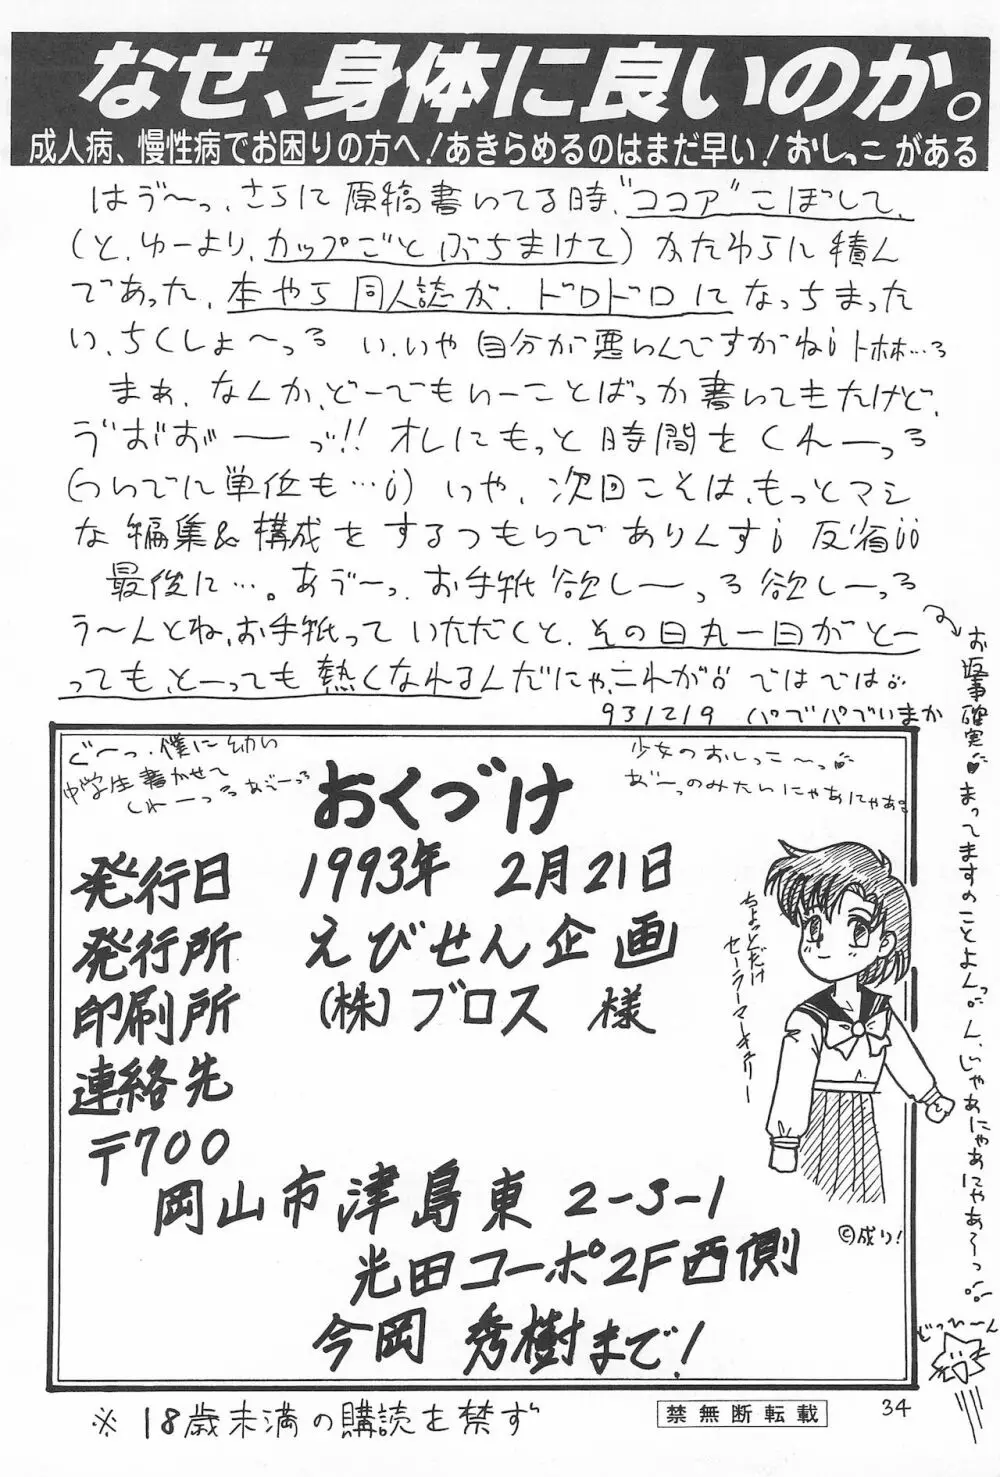 なぜ、身体に良いのか。
成人病、慢性病でお困りの方へ!あきらめるのはまだ早い!おしっこがある
はう゛〜っ、さらに原稿書いてる時、"ココア"こぼして、
(と、ゆーより、カップごとぶちまけて)かたわらに積ん
であった、本やら同人誌が、ドロドロになっちまった
い、ちくしょ〜っ い、いや自分が悪いんですがね トホホ…
まぁ、なんか、どーでもいーことばっか書いてきたけど、
う゛お゛お゛ーっ!!オレにもっと時間をくれーっ
(ついでに単位も…)いや、次回こそは、もっとマシ
な編集&構成をするつもりでありんす 反省
最後に…。あう゛ーっ、お手紙欲しーっ欲しーっ
う〜んとね、お手紙っていただくと、その日丸一日がとー
っても、とーっても熱くなれるんだにゃ、これが ではでは
931219
お返事確実 まってますのことよんっ
おくづけ
発行日 1993年 2月21日
発行所 えびせん企画
印刷所 (株)ブロス 様
連絡先
ちょっとだけ
セーラーマーキュリー
©成り!
どっひーん
※18歳未満の購読を禁ず
禁無断転載
34